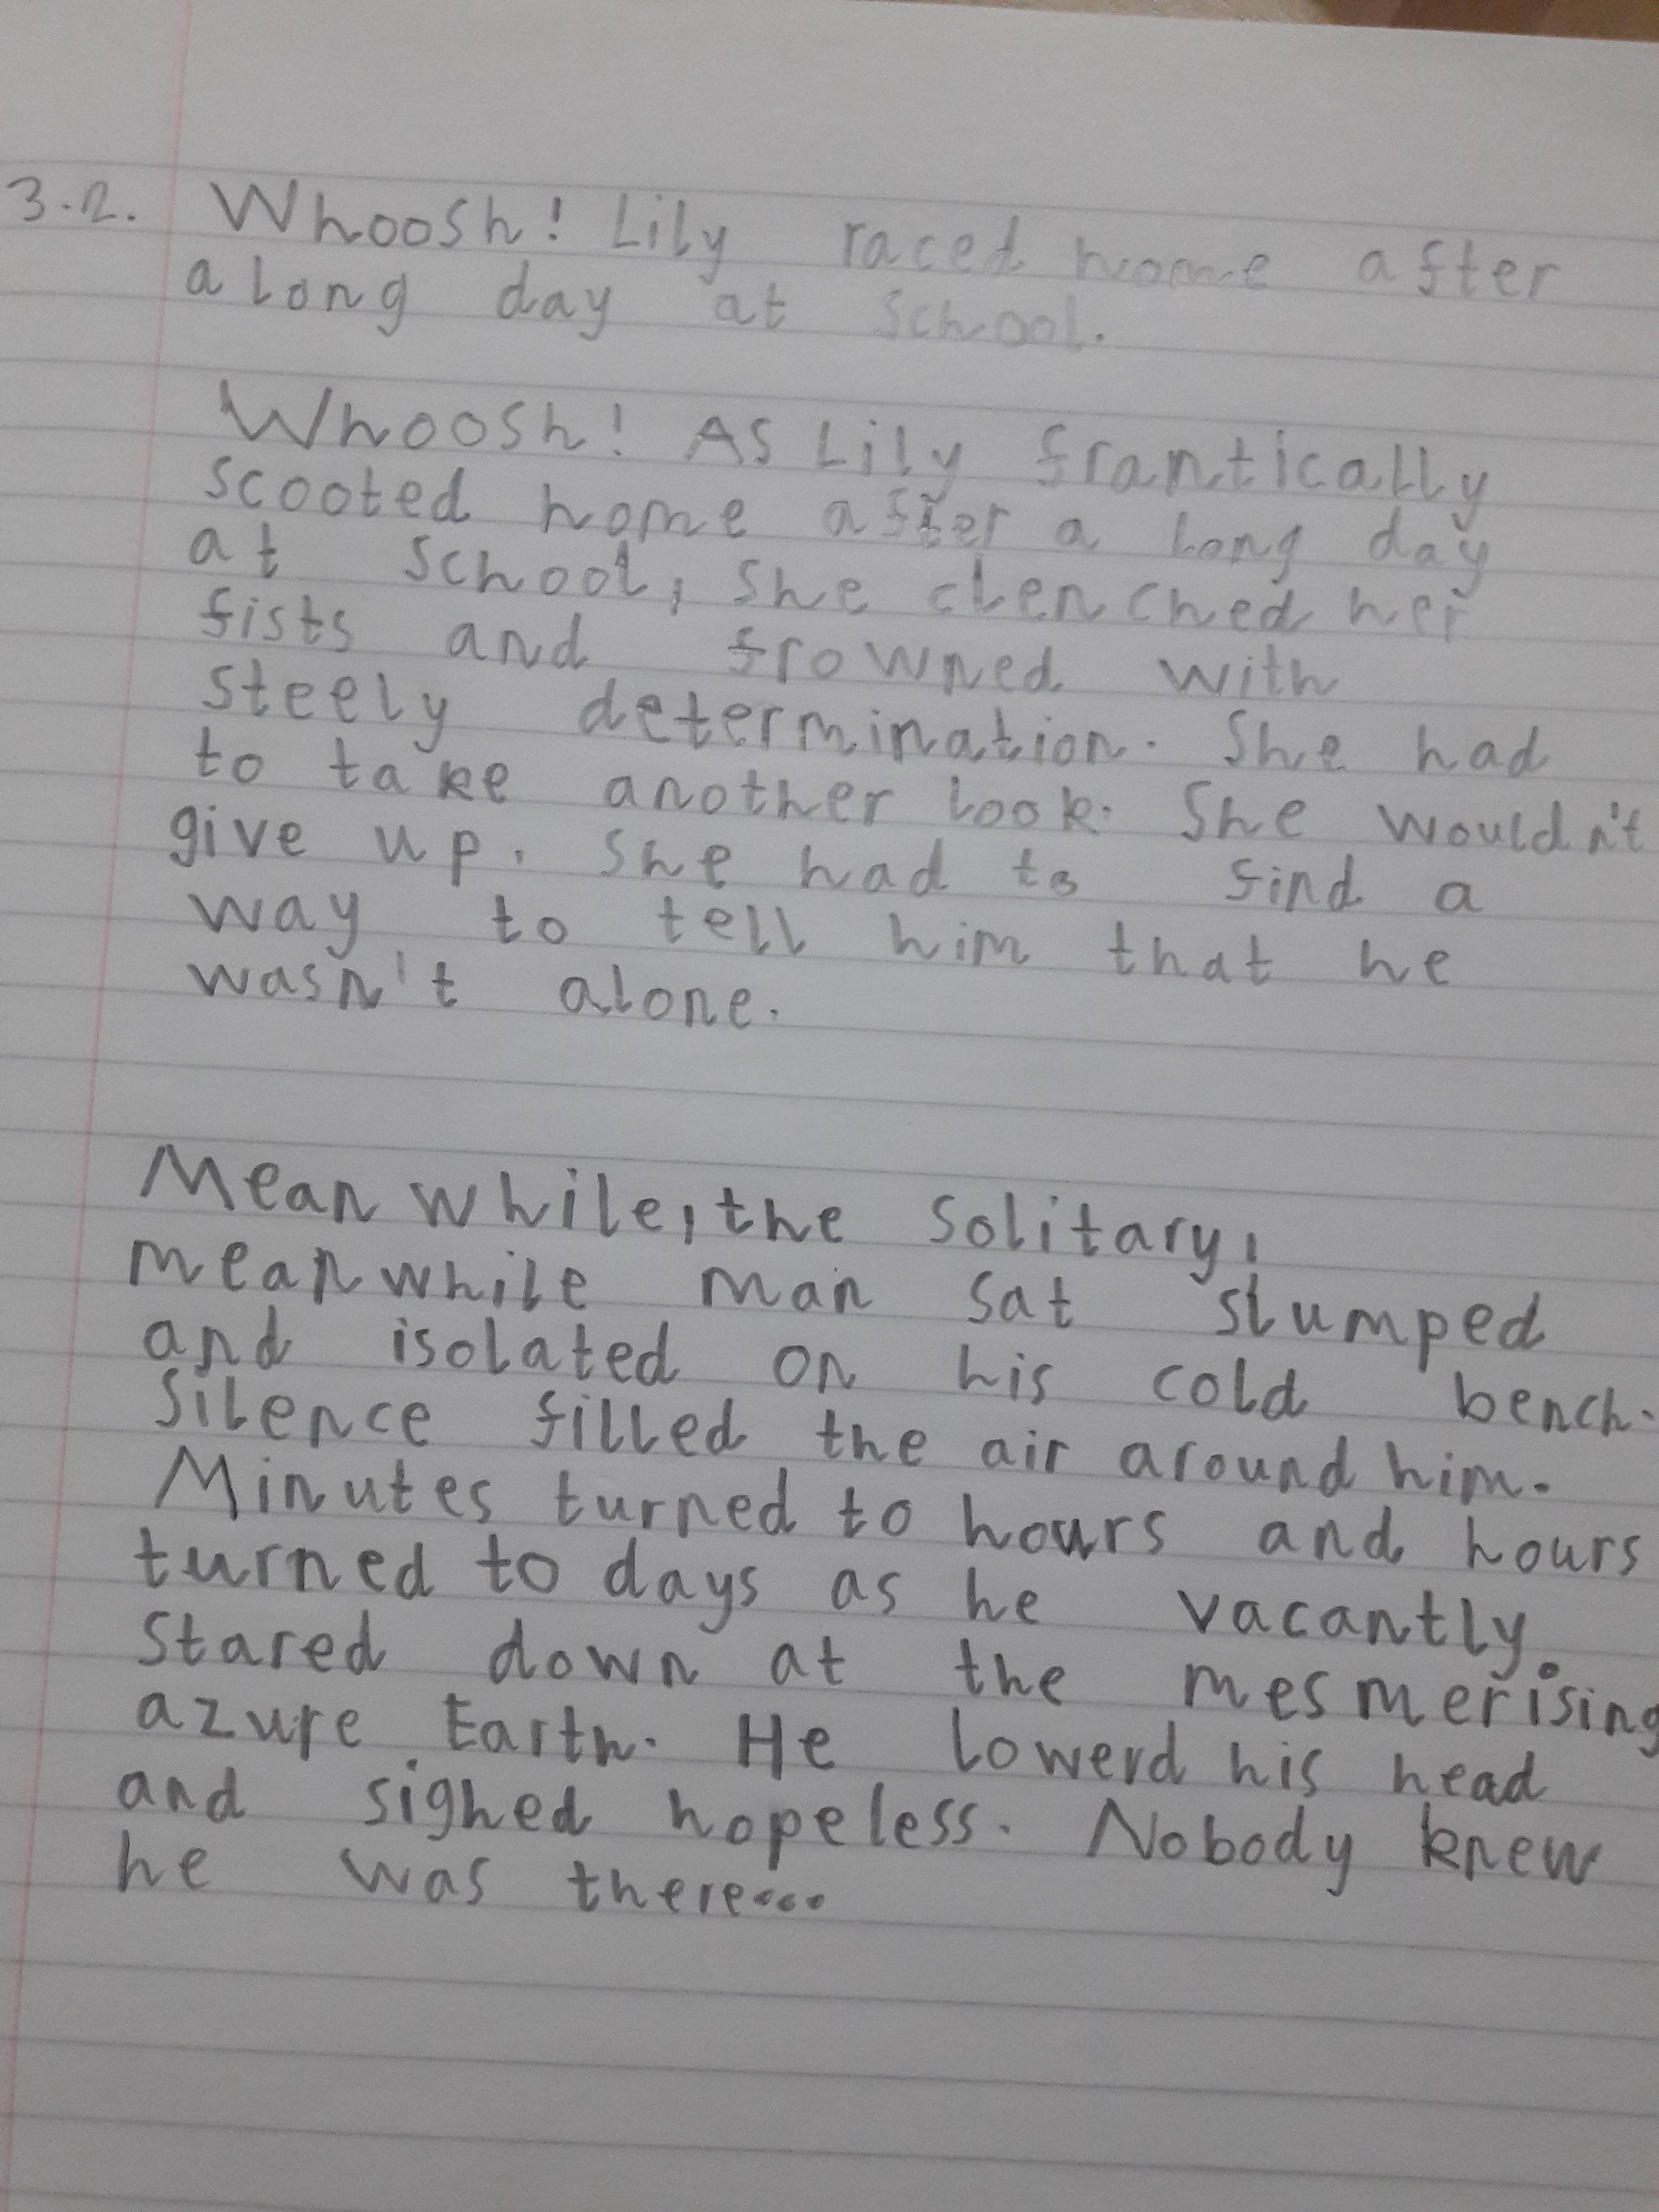 3.2. Whoosh! Lily raced home after
a long day at school.
Whoosh! As Lily frantically
scooted home after a long day
at school, she clenched her
fists and frowned with
steely determination. She had
to take another look. She wouldn't
give up. She had to find a
way to tell him that he
wasn't alone.
Meanwhile, the solitary,
meanwhile man sat slumped
and isolated on his cold bench.
Silence filled the air around him.
Minutes turned to hours and hours
turned to days as he vacantly
stared down at the mesmerising
azure Earth. He lowerd his head
and sighed hopeless. Nobody knew
he was there...